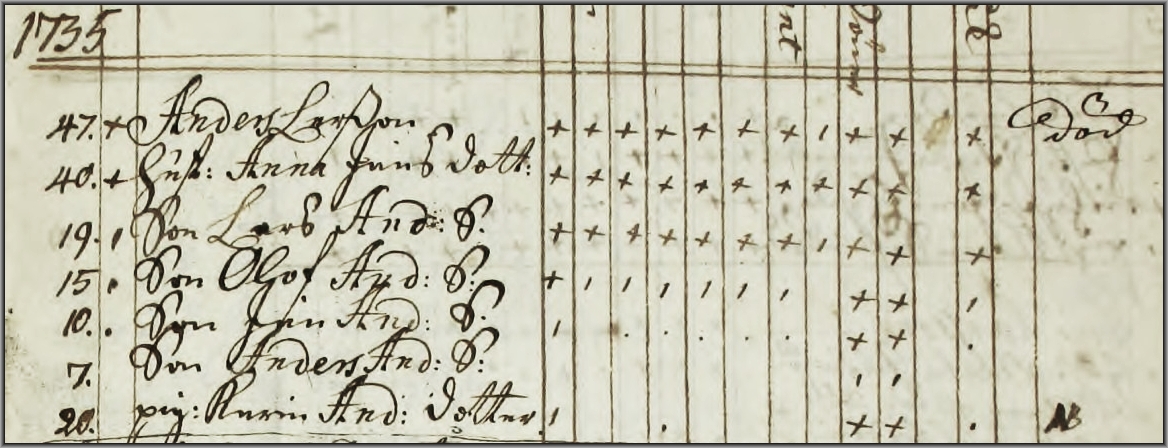 1735
47. + Anders Larsson död
40. + Hust: Anna Jans dott:
19. Son Lars And: S:
15 Son Olof And: S:
10. Son Jan And: S:
7. Son Anders And: S:
20. pig: Karin And: Dotter NB